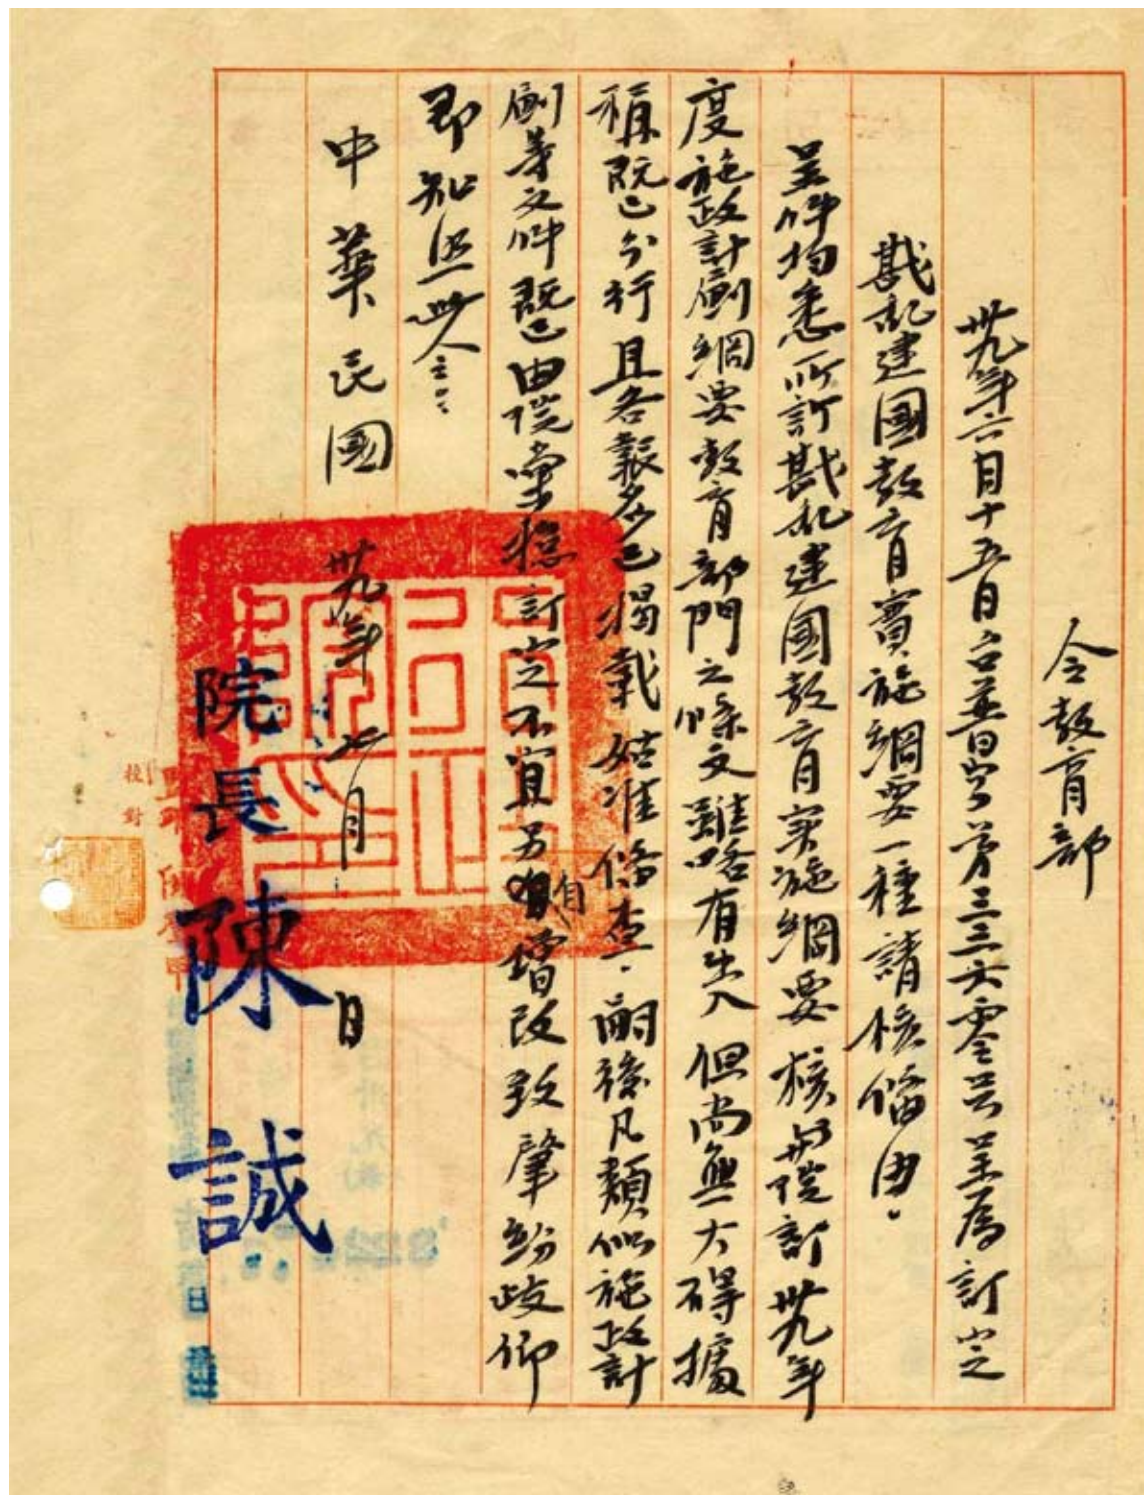 令教育部
卅九年六月十五日台普字第三三六零號呈為訂定
戡亂建國教育實施綱要一種請核備由。
呈件均悉所訂戡亂建國教育实施綱要核與院訂卅九年
度施政計劃綱要教育部門之條文雖略有出入但尚無大碍據
稱既已分行且各報多已揭載姑准備查。嗣後凡類似施政計
劃等文件既已由院彙總訂定不宜另自增改致肇紛歧仰
即知照此令。
中華民國卅九年七月日
院長陳誠
校對